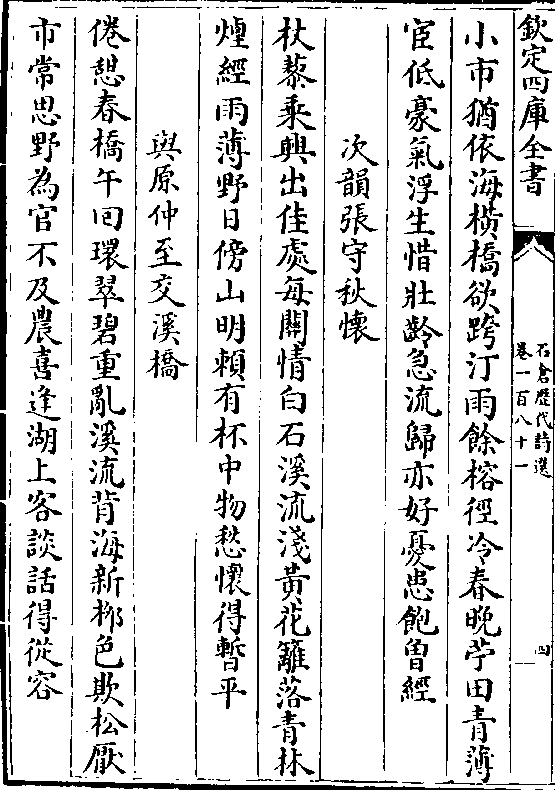 欽定四庫全書
石倉歷代詩選
卷一百八十一
四
小市猶依海橫橋欲跨汀雨餘榕徑冷春晚苧田青薄
宦低豪氣浮生惜壯齡急流歸亦好憂患飽曾經
次韻張守秋懷
杖藜乘興出佳處每關情白石溪流淺黃花籬落青林
煙經雨薄野日傍山明賴有杯中物愁懷得暫平
與原仲至交溪橋
倦憩春橋午回環翠碧重亂溪流背海新栁色欺松厭
市常思野為官不及農喜逢湖上客談話得從容